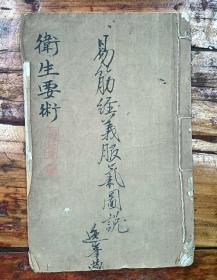 衛生要術
易筋經義服氣圖說